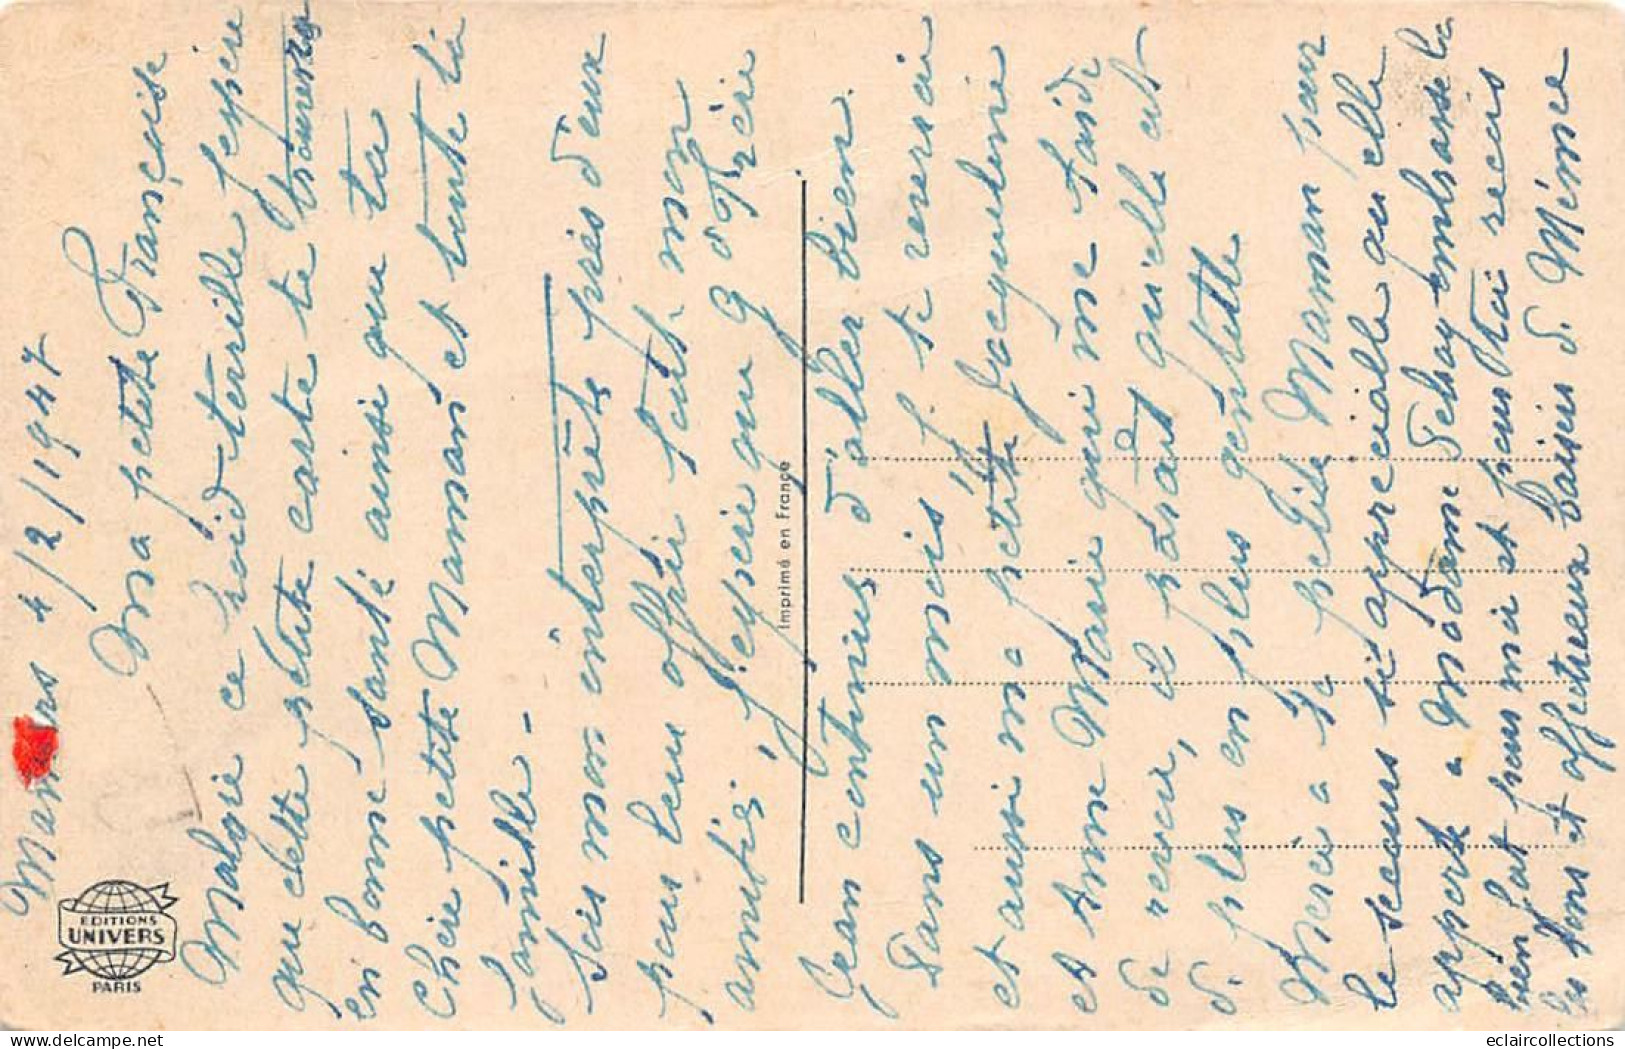 Mamers 4/2/1947
Ma petite Françoise
Malgré ce froid terrible j'espère
que cette petite carte te trouvera
en bonne santé ainsi que ta
chère petite Maman et toute la
famille -
Sois mon interprète près d'eux
pour leur offrir tout mon
amitié, j'espère que ton frère
Jean continue d'aller bien.
Dans un mois, je te reverrai
et aussi ma petite Jacqueline
et Anne Marie que me tarde
de revoir, il paraît qu'elle est
de plus en plus gentille
Merci a ta petite Maman pour
le secours si appréciable qu'elle
apporte a Madame embrasse la
bien fort pour moi et pour toi reçois
les bons et affectueux baisers d. Mémée
EDITIONS
UNIVERS
PARIS
Imprimé en France
eclaircollections